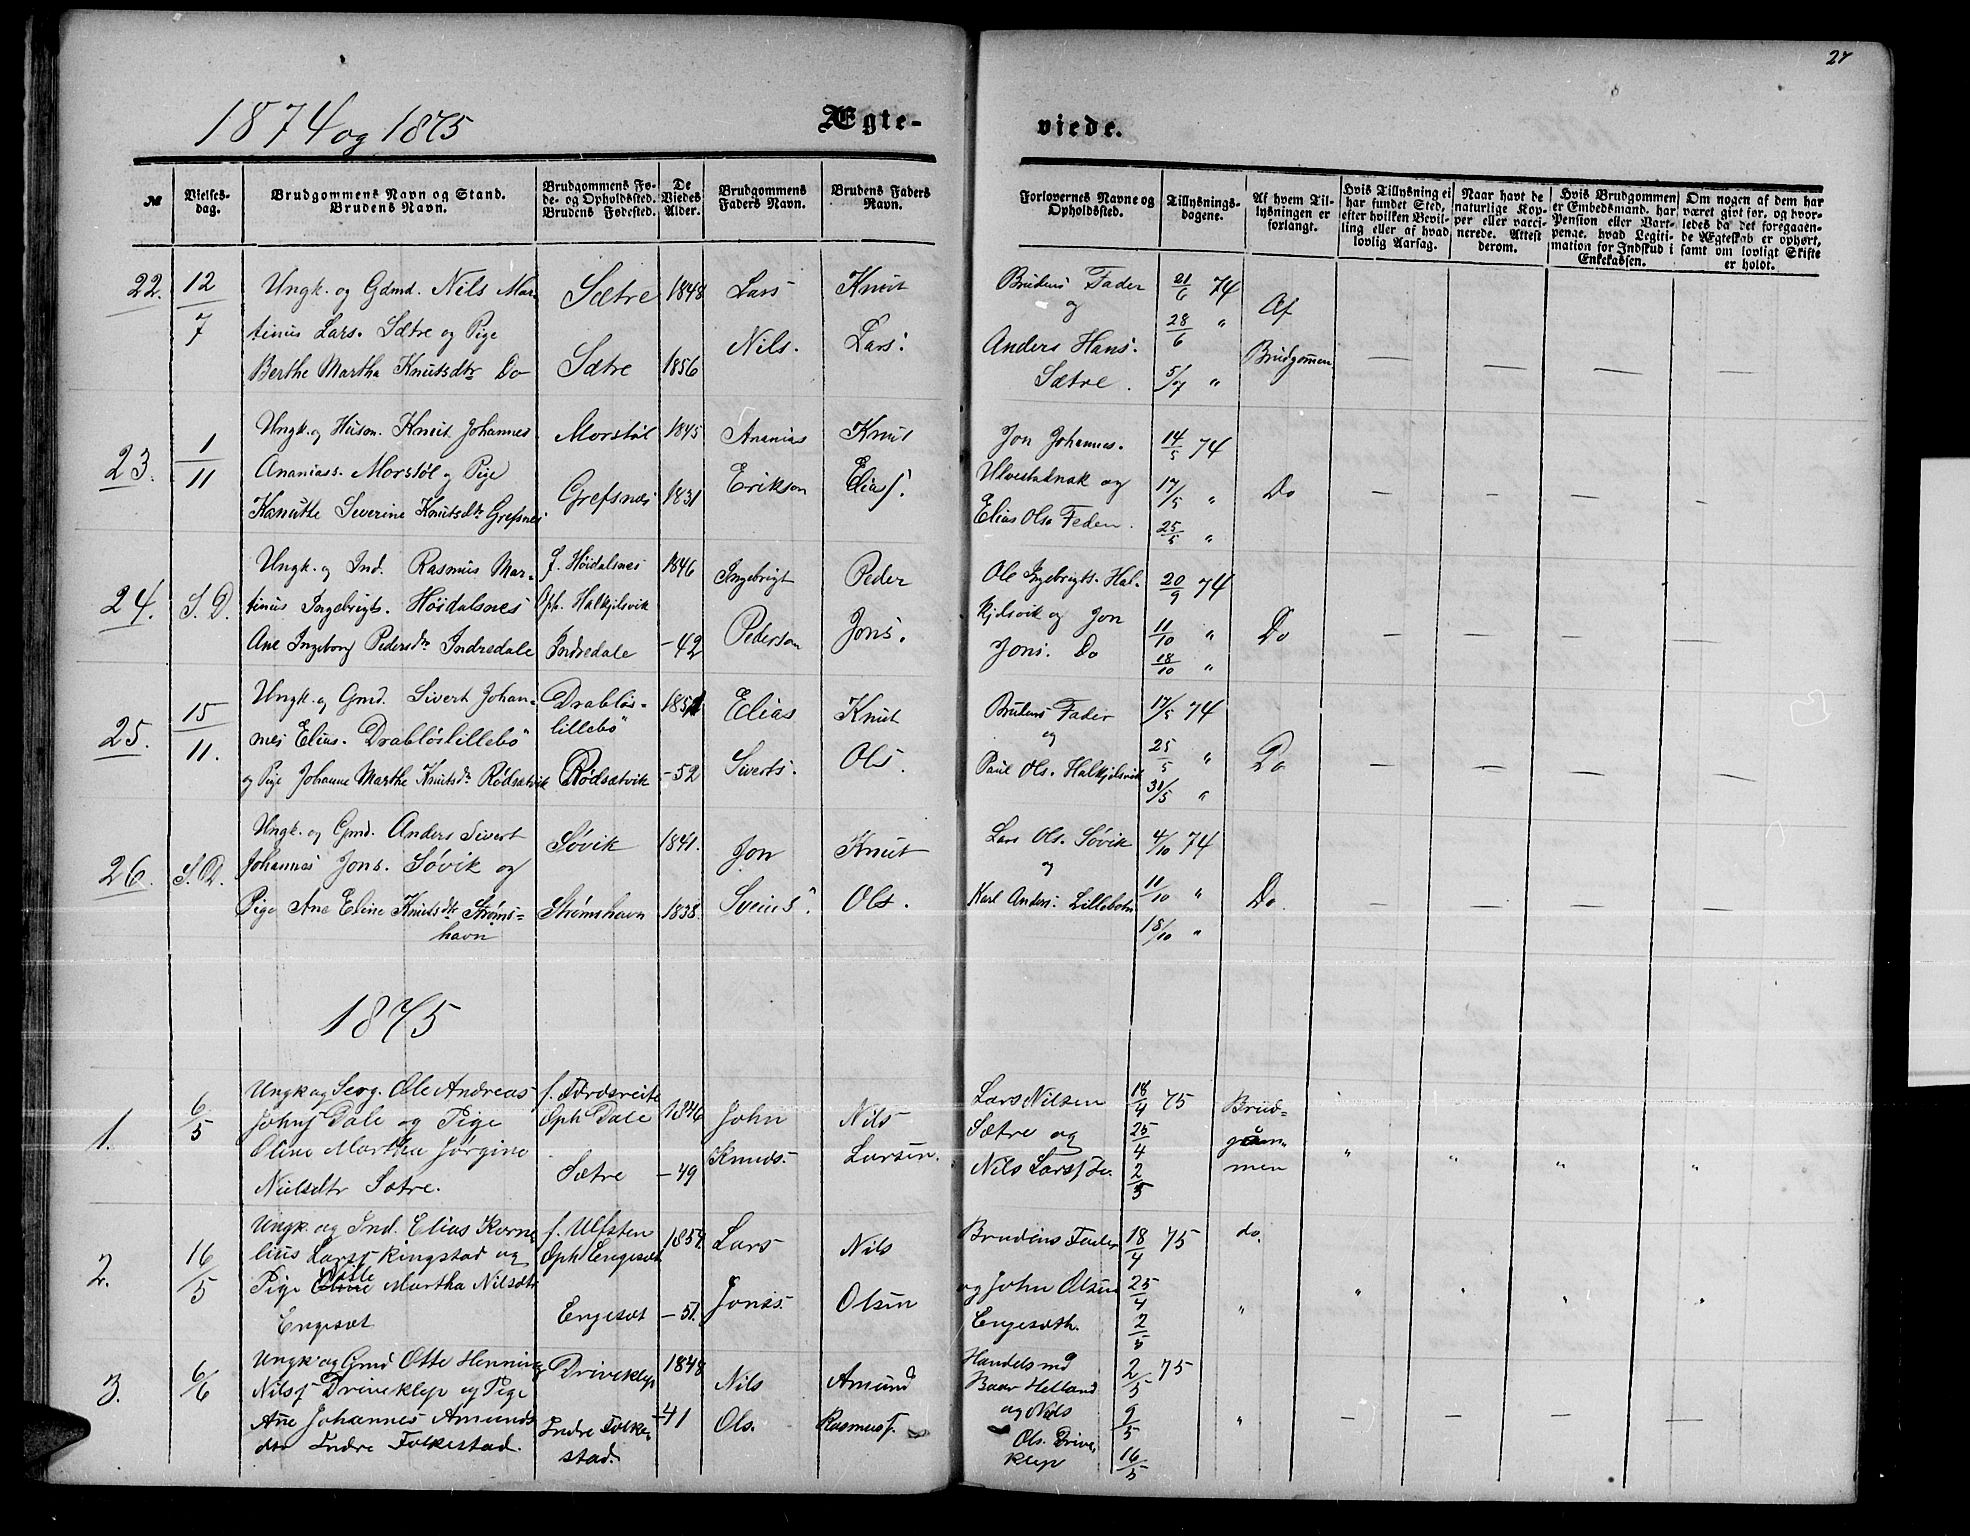 27
1874 og 1875
Ægte-
viede.
№
Vielses-
dag.
Brudgommens Navn og Stand.
Brudens Navn.
Brudgommens Fø-
de- og Opholdssted.
Brudens Fødested.
De
Viedes
Alder.
Brudgommens
Faders Navn.
Brudens Faders
Navn.
Forlovernes Navne og
Opholdssted.
Tillysnings-
dagene.
Af hvem Til-
lysningen er
forlangt.
Hvis Tillysning ei
har fundet Sted,
efter hvilken Bevil-
ling eller af hvad
lovlig Aarsag.
Naar havt de
naturlige Kop-
per eller vacci-
nerede. Attest
derom.
Hvis Brudgommen
er Embedsmand, har
Pension eller Vart-
penge, hvad Legiti-
mation for Indskud i
Enkekassen.
Om nogen af dem har
været givt før, og hvor-
ledes da det foregaaen-
de Ægteskab er ophørt,
samt om lovligt Skifte
er holdt.
22. 12/7
Ungk. og Gdmd. Nils Mar-
tinus Lars. Sætre og Pige
Berthe Martha Knutsdtr Do
Sætre 1848
Sætre 1856
Lars
Nils.
Knut
Lars.
Brudens Fader
og
Anders Hans.
Sætre.
21/6 74
28/6 "
5/7 "
Af
Brudgommen
— — — —
23. 1/11
Ungk. og Husm. Knut Johannes
Ananiass. Morstøl og Pige
Kanutte Severine Knutsdtr Grefsnes
Morstøl 1845
Grefsnes 1831
Ananias
Erikson
Knut
Elias.
Jon Johannes.
Ulvestadnak og
Elias Ols. Feden.
14/5 74
17/5 "
25/5 "
Do
— — — —
24. S. D.
Ungk. og Ind. Rasmus Mar-
tinus Ingebrigts. Høidalsnes
Ane Ingeborg Pedersdtr Indredale
f. Høidalsnes 1846
Oph. Halkjelsvik
Indredale - 42
Ingebrigt
Pederson
Peder
Jons.
Ole Ingebrigts. Hal-
kjelsvik og Jon
Jons. Do
20/9 74
11/10 "
18/10 "
Do
— — — —
25. 15/11.
Ungk. og Gmd. Sivert Johan-
nes Elias. Drabløslillebø
og Pige Johanne Marthe Knutsdtr Rødsætvik
Drabløs-
lillebø
Rødsætvik - 52
Elias
Siverts.
Knut
Ols.
Brudens Fader
og
Paul Ols. Halkjelsvik
17/5 74
25/5 "
31/5 "
Do
— — — —
26. S. D.
Ungk. og Gmd. Anders Sivert
Johannes Jons. Søvik og
Pige Ane Eline Knutsdtr Strøms-
havn
Søvik 1841.
Strømshavn 1838.
Jon
Sveins.
Knut
Ols.
Lars Ols. Søvik
og
Karl Anders. Lillebotn
4/10 74
11/10 "
18/10 "
Do
— — — —
1875
1. 6/5
Ungk og Serg. Ole Andreas
Johns Dale og Pige
Oline Martha Jørgine
Nielsdtr Sætre.
f. Førdsreite
Oph Dale 1846
Sætre - 49
John
Knuds.
Nils
Larsen.
Lars Nilsen
Sætre og
Nils Larss do.
18/4 75
25/4
2/5
Brud-
gom-
men
" " " "
2. 16/5
Ungk. og Ind. Elias Korne-
lius Larss Ringstad og
Pige Martha Nilsdtr
Engesæt
f. Ulfsten
Oph Engesæt
Engesæt - 51.
Lars
Jonas.
Nils
Olsen
Brudens Fader
og John Olsen
Engesæth.
18/4 75
25/4
2/5
do.
"
" " " "
3. 6/6
Ungk og Gmd Otte Henning
Nilss Driveklep og Pige
Ane Johannes Amunds
dtr Indre Folkestad.
Driveklep 1848
Indre Folke-
stad. - 41
Nils
Ols.
Amund
Rasmuss.
Handelsmd
Baar Helland
og Nils
Ols. Drive-
klep
2/5 75
9/5
16/5
"
— — — —